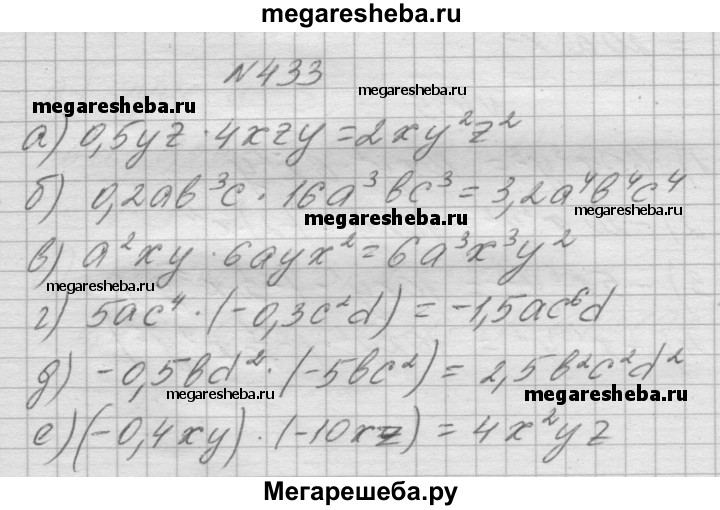 megaresheba.ru
№433
megaresheba.ru
megaresheba.ru
а) 0,5yz · 4xzy = 2xy²z²
б) 0,2ab³c · 16a³bc³ = 3,2a⁴b⁴c⁴
megaresheba.ru
megaresheba.ru
в) a²xy · 6ayx² = 6a³x³y²
megaresheba.ru
г) 5ac⁴ · (-0,3c²d) = -1,5ac⁶d
д) -0,5bd² · (-5bc²) = 2,5b²c²d²
megaresheba.ru
megaresheba.ru
е) (-0,4xy) · (-10xz) = 4x²yz
Мегарешеба.ру